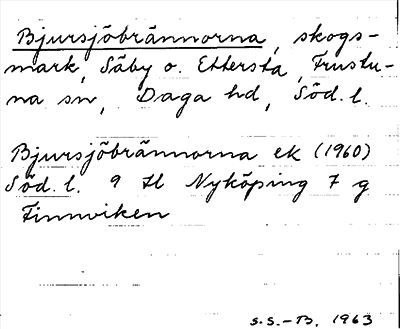 Bjursjöbrännorna, skogs-
mark, Säby o. Ettersta, Frustu-
na sn, Daga hd, Söd. l.
Bjursjöbrännorna ek (1960)
Söd. l. 9 H Nyköping 7 g
Finnviken
S.S.-B. 1963